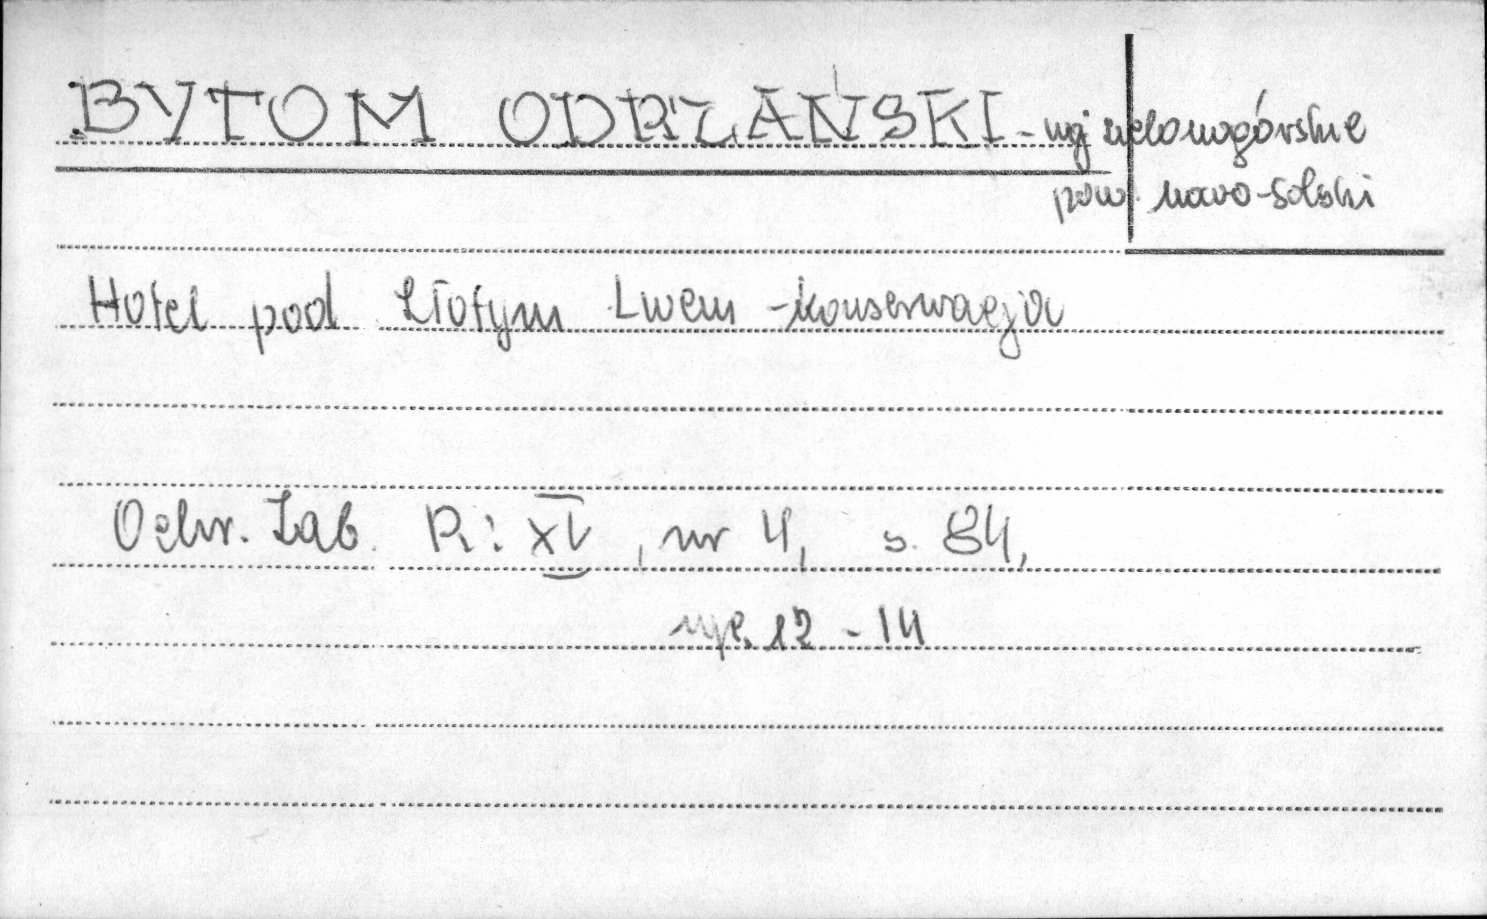 BYTOM ODRZAŃSKI - woj zielonogórskie
pow. nowo-solski
Hotel pod Złotym Lwem - konserwacja
Ochr. Zab. R: XV, nr 4, s. 84,
ryc. 12 - 14